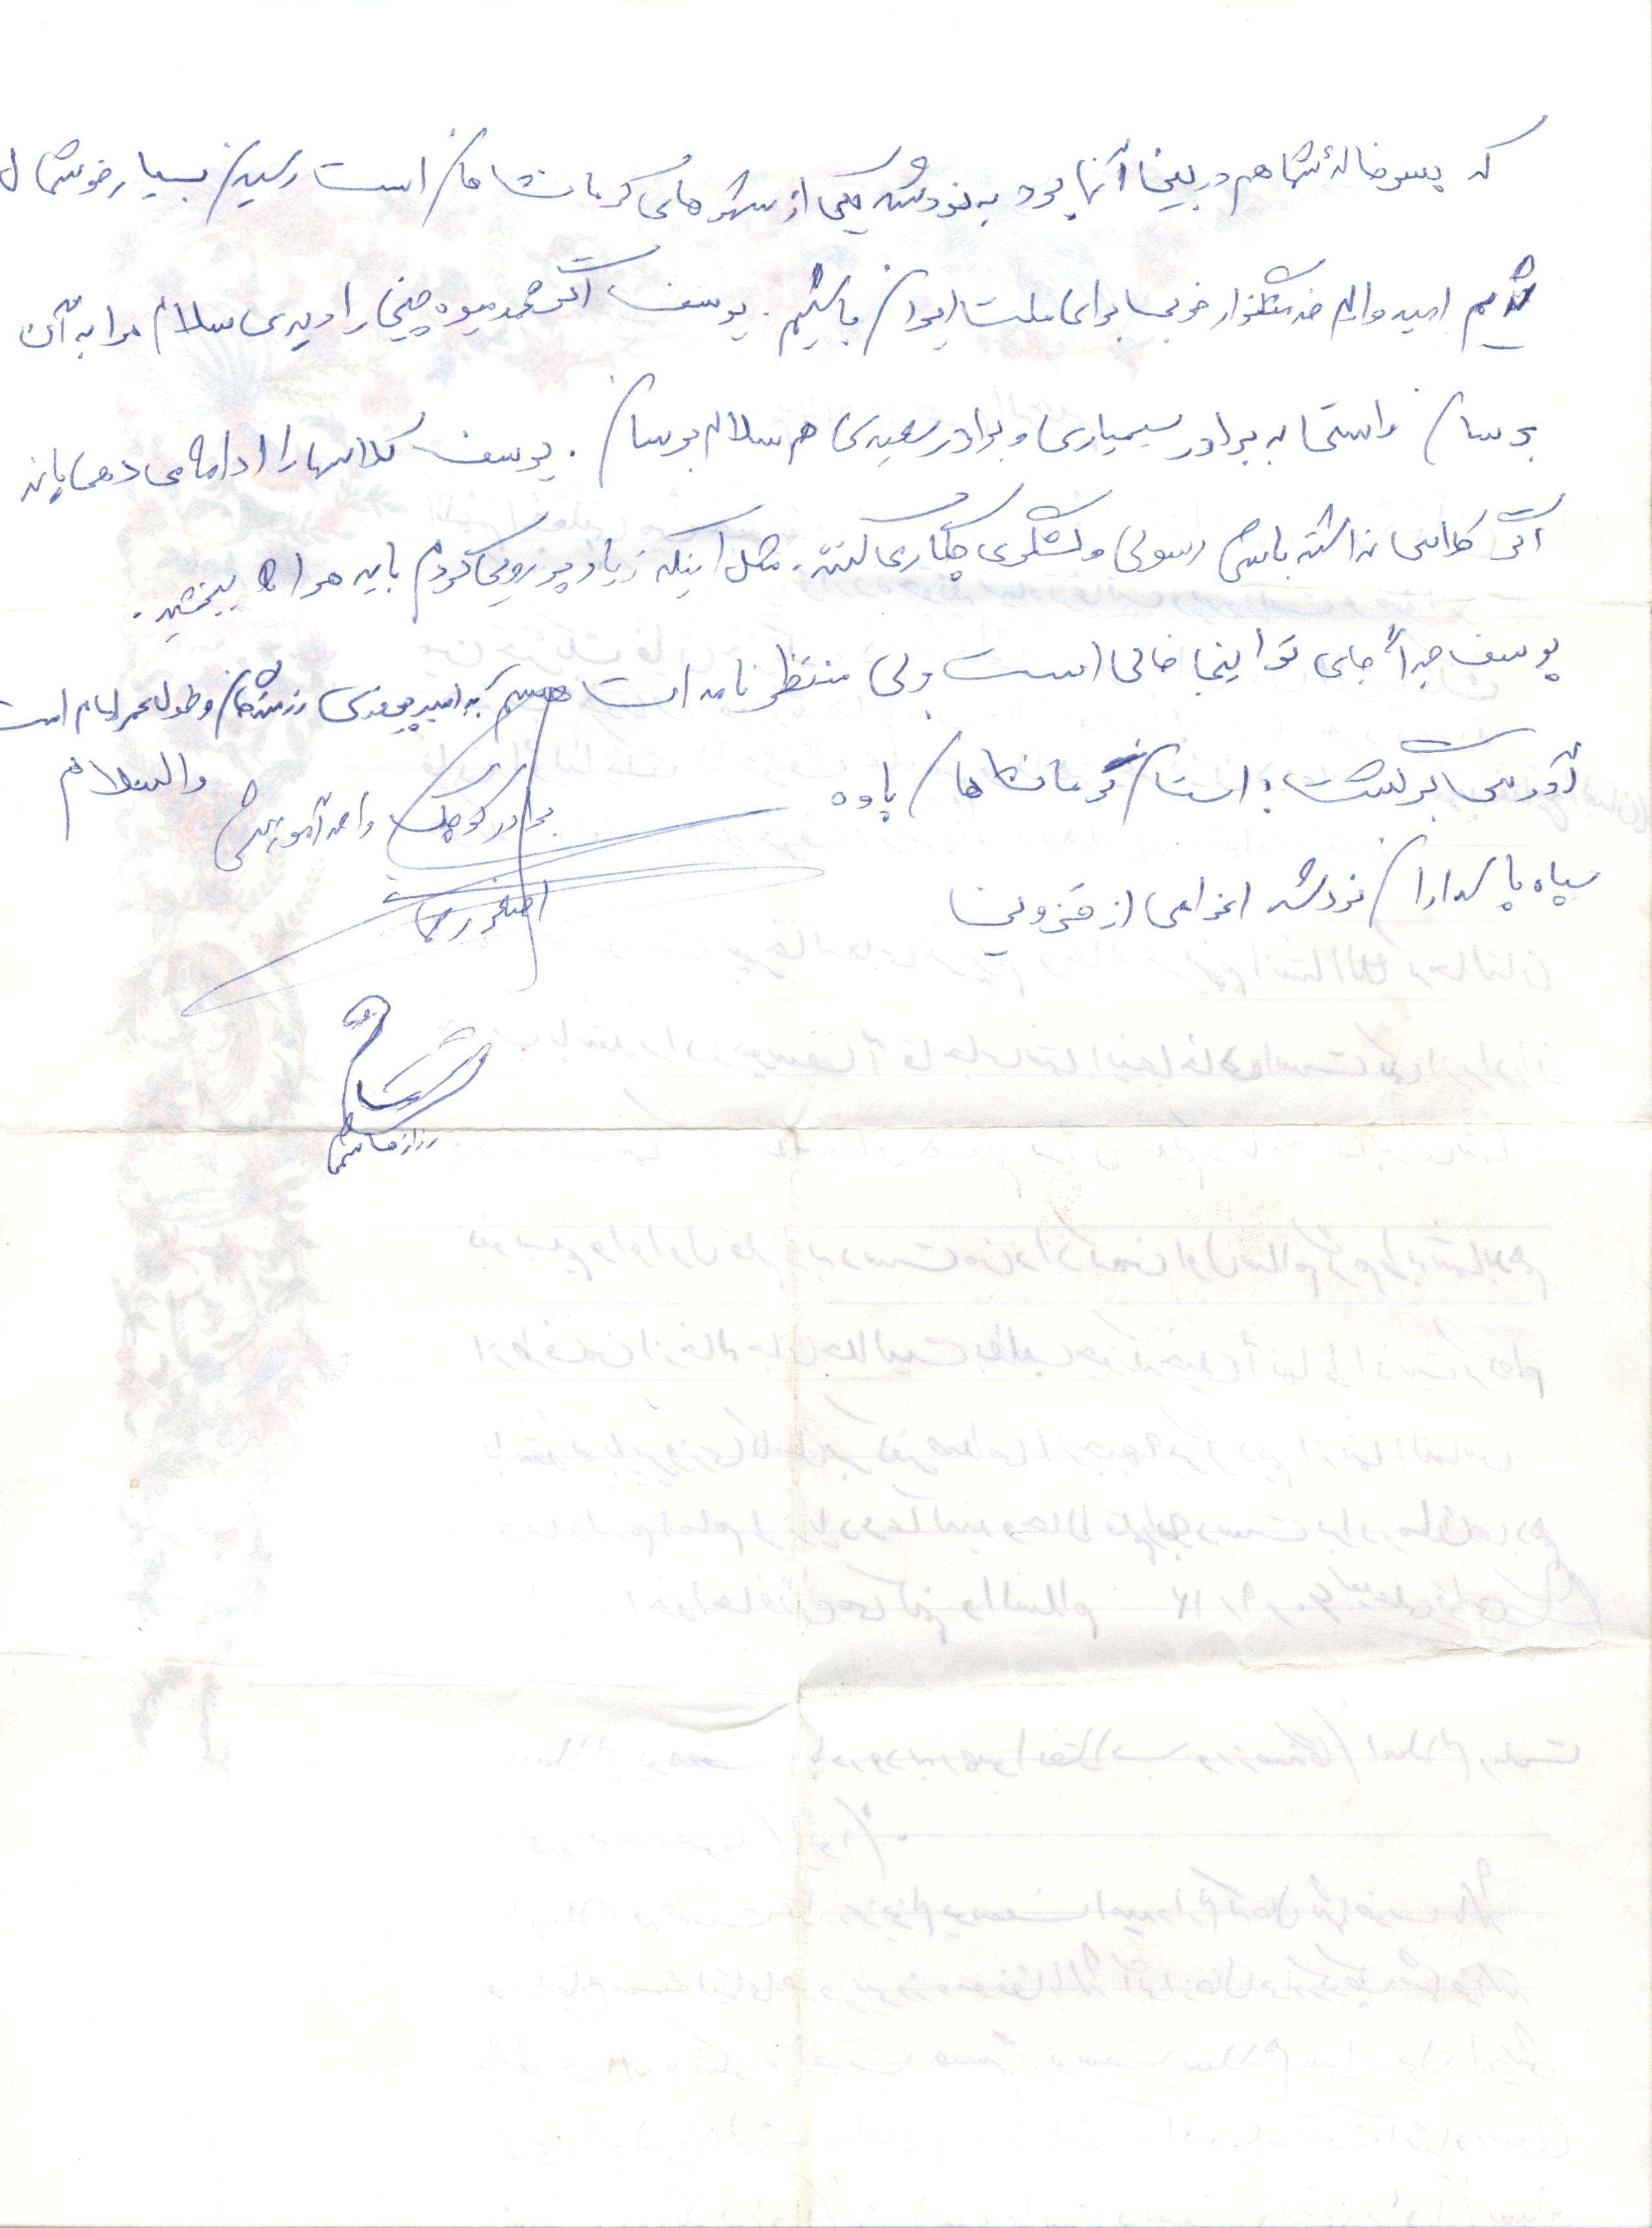 که پسر خالهٔ شما هم در بین آنها بود به نودشه یکی از شهرهای کرمانشاهان است رسیدن بسیار خوشحال
شدیم امیدوارم خدمتگزار خوبی برای ملت ایران باشیم. یوسف اگر محمد میوه چینی را دیدی سلام مرا به آن
برسان راستی به برادر سیمیاری و برادر سعیدی هم سلام برسان. یوسف کلاسها را ادامه می دهی یا نه
اگر کلاسی نداشته باشی رسولی و لشگری چکاری کنند. مثل اینکه زیاد پر رویی کردم باید مرا ببخشید.
یوسف جداً جای تو اینجا خالی است ولی منتظر نامه ات هستم به امید پیروزی رزمندگان و طول عمر امام امت
آدرس برگشت: استان کرمانشاهان پاوه
والسلام
برادر کوچک واحد آموزشی
سپاه پاسداران نودشه اعزامی از قزوین
اصغر